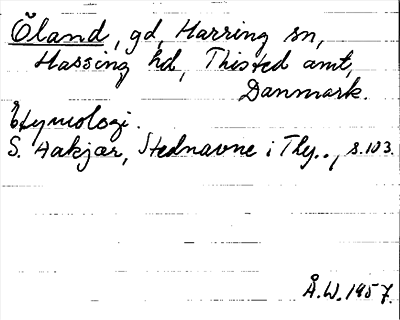 Öland, gd, Harring sn,
Hassing hd, Thisted amt,
Danmark.
Etymologi.
S. Aakjær, Stednavne i Thy.., s.103.
Å.W.1957.